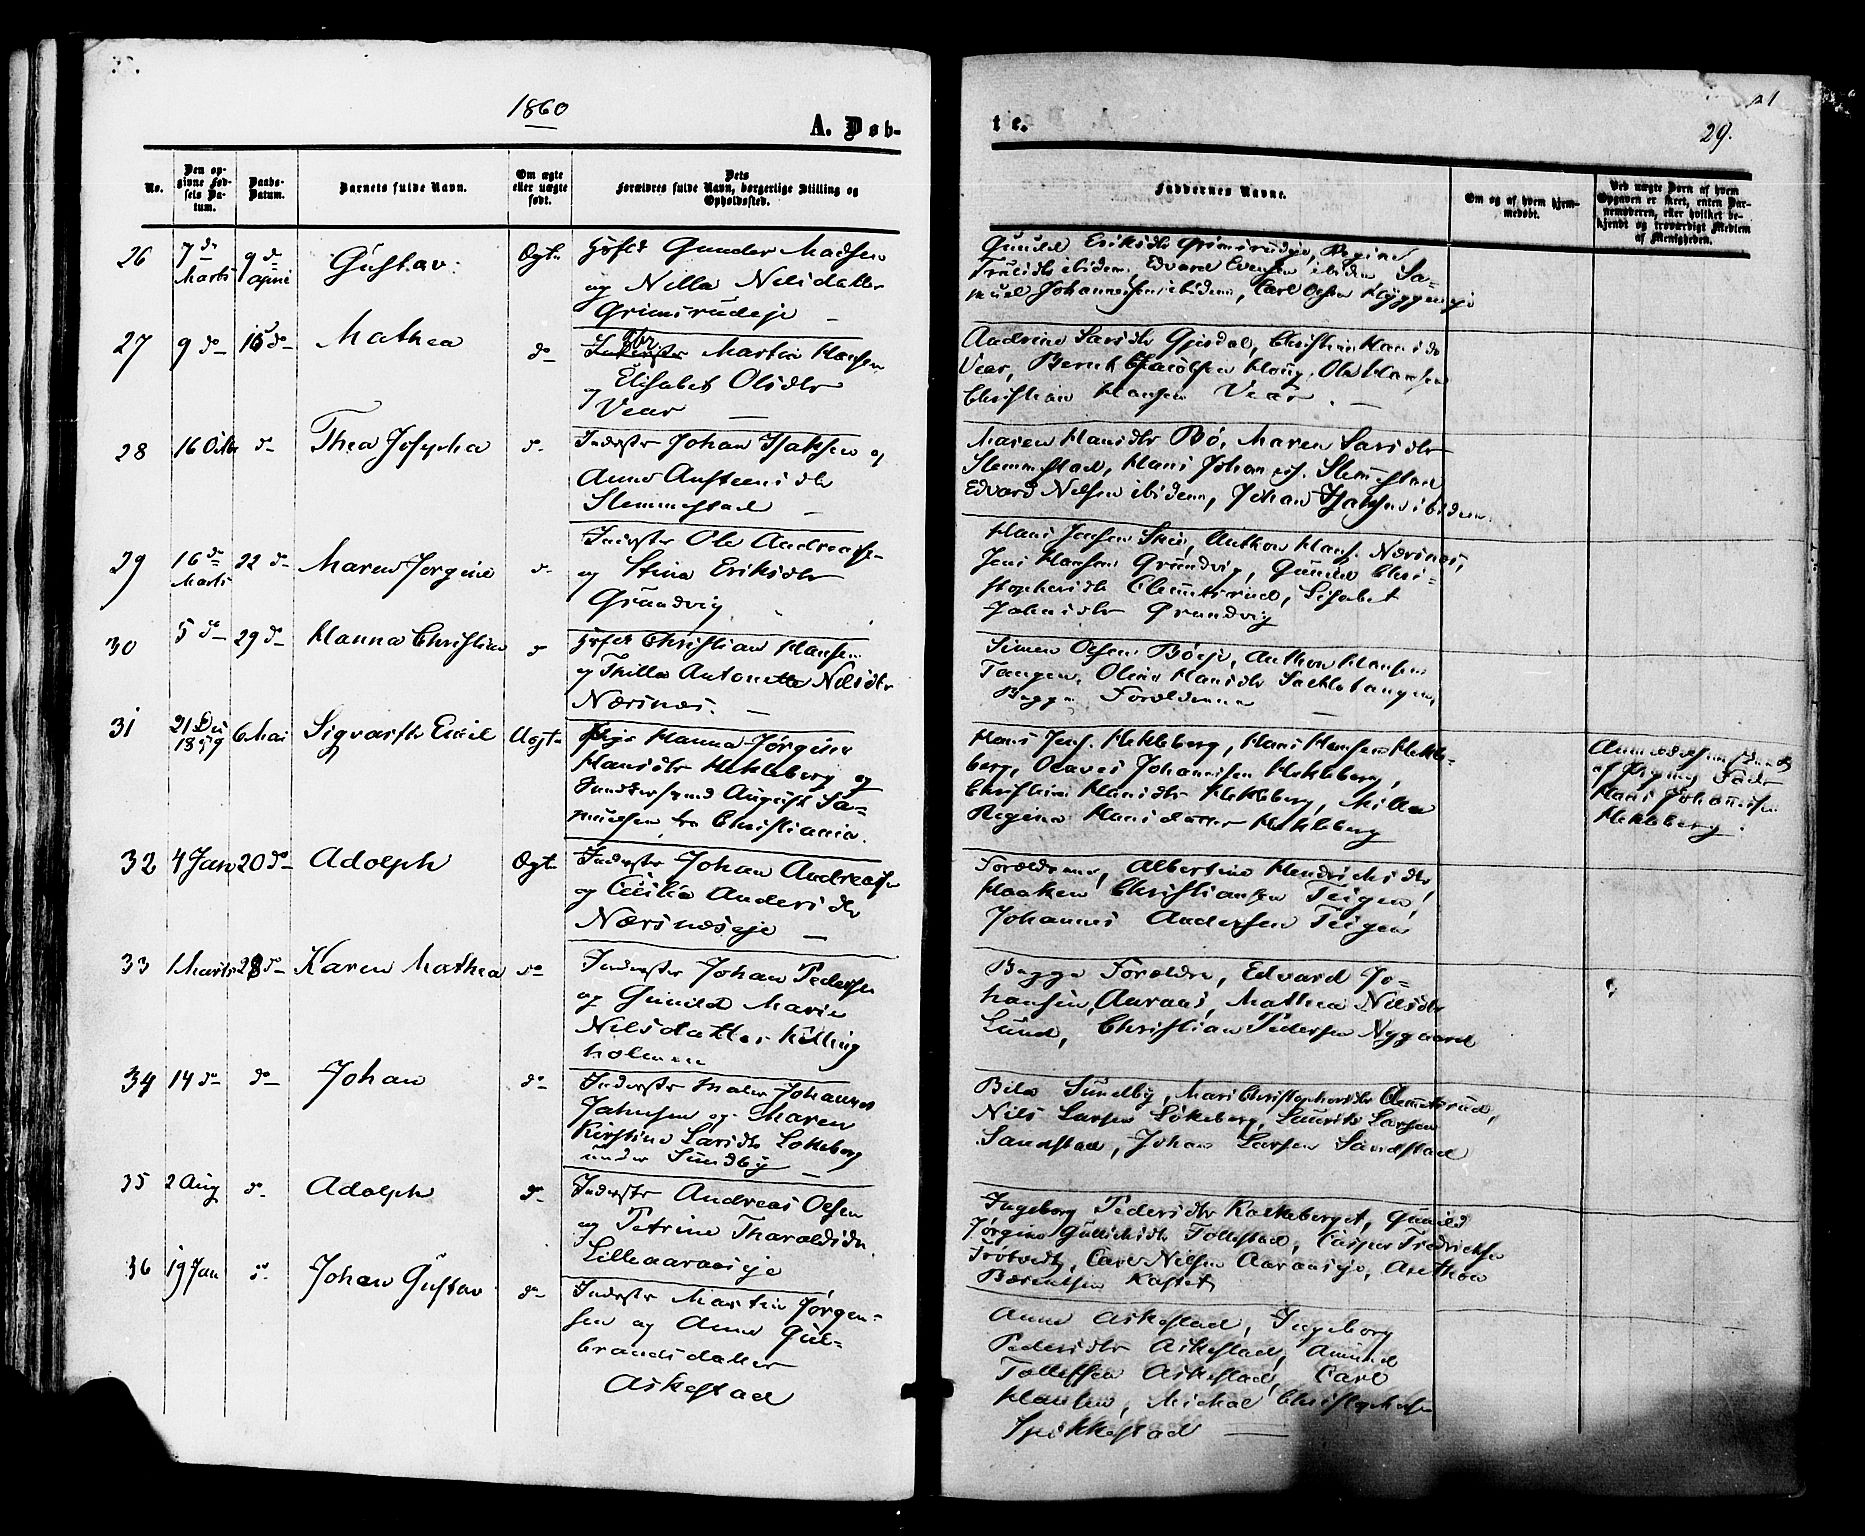 1860
A. Døb-
te.
29.
No.
Den op-
givne Fød-
sels Da-
tum.
Daabs-
Datum.
Barnets fulde Navn.
Om ægte
eller uægte
født.
Dets
Forældres fulde Navn, borgerlige Stilling og
Opholdssted.
Faddernes Navne.
Om og af hvem hjem-
medøbt.
Ved uægte Børn af hvem
Opgaven er skeet, enten Bar-
nemoderen, eller hvilket be-
kjendt og troværdigt Medlem
af Menigheden.
26
7 d
Marts
9 d
April
Gustav
Ægt.
Gunder Madsen
og Nilla Nilsdatter
Grimsrudeje
Gunild Eriksdtr Grimsrudeje,
ibidem, Edvard Evensen ibidem Sa-
muel Johannesen ibidem, Carl Olsen
27
9 d
15 d
Mathea
d
Martin Hansen
og Elisabet Olsdtr
Vear
Andrine Larsdtr Gjerdal, Christine Hansdtr
Vear, Ole Hansen
Christian Hansen Vear.
28
16 Octbr
d
Thea Josepha
d
Inderster Johan Isaksen og
Anne Austeensdtr
Slemmestad
Maren Hansdtr Bö, Maren Larsdtr
Slemmestad, Hans Johannes. Slemestad
Edvard Nilsen ibidem, Johan Isaksen ibidem
29
16 d
Marts
22 d
Maren Jørgine
d
Inderster Ole Andreasse-
og Stina Eriksdtr
Grundvig
Hans Jensen Skei, Anthon Hans. Nærsnes,
Jens Hansen Grundvig, Gunild Chri-
stophersdtr Clemetsrud, Lisabet
Johnsdtr Grundvig
30
5 d
29 d
Hanna Christine
d
Christian Hansen
og Thilla Antonette Nilsdtr
Nærsnes.
Simen Olsen Böeje, Anthon Hansen
Tangen, Oline Hansdtr
Begge Forældrene
31
21 Dec
1859
6 Mai
Sigvarth Emil
Uegte
Pige Hanna Jørgine
Hansdtr Hekleberg og
August Sa-
muelsen fra Christiania.
Hans Jens. Hekleberg, Hans Hansen Hekle-
berg, Olaves Johannesen Hekleberg,
Christine Hansdtr Hekleberg, Milla
Regine Hansdatter Hekleberg
af Pigens Fader
Hans Johannesen
Hekleberg.
32
4 Jan
20 d
Adolph
Ægt.
Inderster Johan Andreasen
og Cicilia Andersdtr
Nærsneseje
Forældrene, Albertine Hendriksdtr
Haaken Christiansen Teigen,
Johannes Andersen Teigen
33
1 Marts
28 d
Karen Mathea
do
Inderster Johan Pedersen
og Gunild Marie
Nilsdatter Killing
holmen
Begge Forældre, Edvard Jo-
hansen, Aaraas, Mathea Nilsdtr
Lund, Christian Pedersen Nygaard
34
14 do
do
Johan
do
Inderster Maler Johannes
Jahnsen og Maren
Kirstine Larsdtr Løkeberg
under Sundby
Sundby, Mari Christophersdtr Clemetsrud,
Nils Larsen Løkeberg, Laurits Larsen
Sandstad, Johan Larsen Sandstad
35
2 Aug
d.
Adolph
d
Inderster Andreas Olsen
og Petrine Tharaldsdr.
Lilleaaraaseje
Ingeborg Pedersdtr Kalkeberget, Gunild
Jørgine Gullichsdtr Follestad, Casper Fredriksen
Carl Nilsen Aaraaseje, Anthon
36
19 Jan
d.
Johan Gustav
do
Inderster Martin Jørgen-
sen og Anne Gul-
brandsdatter
Askestad
Anne Askestad, Ingeborg
Pedersdtr Askestad, Amund
Tollefsen Askestad, Carl
Hansen, Michal Christophersen
Spikkestad